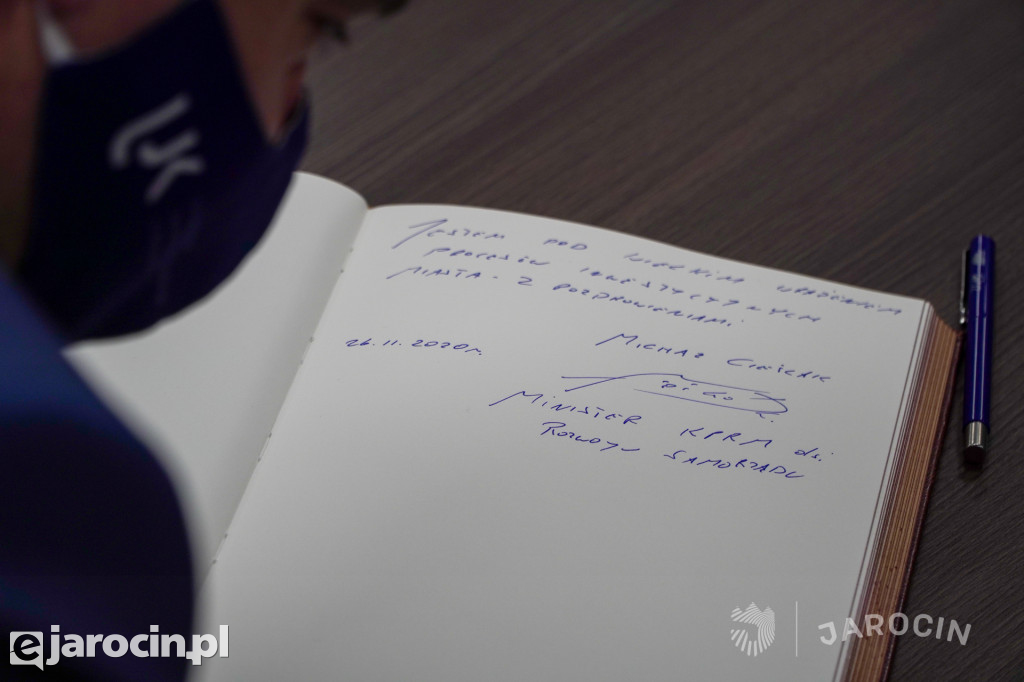 JESTEM POD WIELKIM WRAŻENIEM
PROCESÓW INWESTYCYJNYCH
MIASTA - Z POZDROWIENIAMI
26.11.2020r.
MICHAŁ CIEŚLAK
MINISTER KPRM ds.
ROZWOJU SAMORZĄDU
ejarocin.pl
JAROCIN